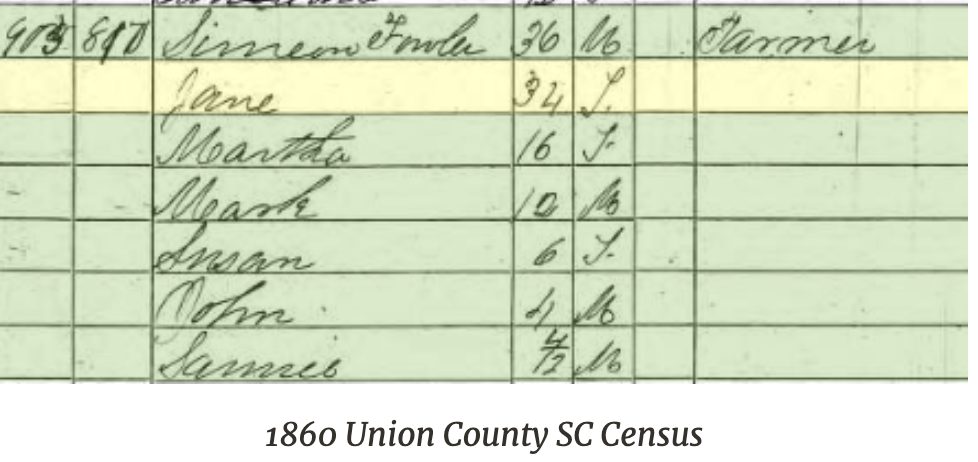 903 810 Simeon Fowler 36 M Farmer
Jane 34 F.
Martha 16 F
Mark 12 M
Susan 6 F
John 4 M
4/12 M
1860 Union County SC Census